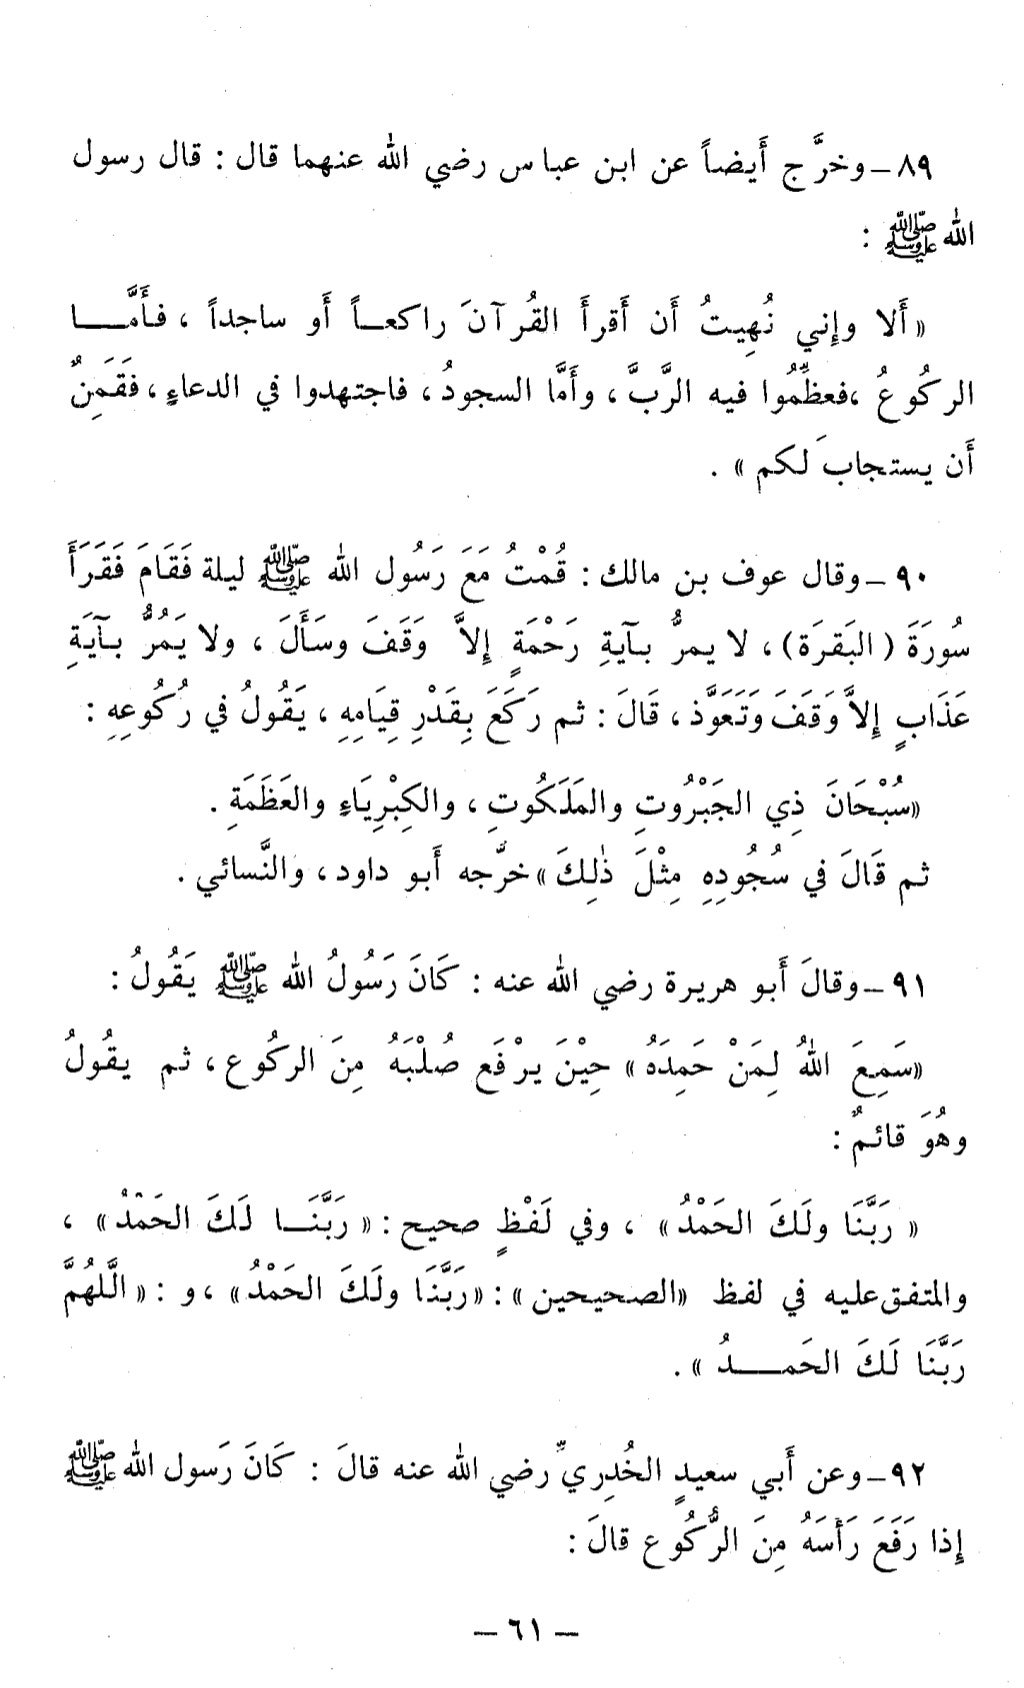 ٨٩ – وخرَّج أَيضاً عن ابن عباس رضي الله عنهما قال : قال رسول
الله ﷺ :
« أَلا وإني نُهِيتُ أَن أَقرأَ القُرآنَ راكعـاً أَو ساجداً ، فـأَمَّـــا
الركُوعُ ،فعظِّمُوا فيه الرَّبَّ ، وأَمَّا السجودُ ، فاجتهدوا في الدعاءِ ، فقَمَنٌ
أَن يستجابَ لكم » .
٩٠ – وقال عوف بن مالك : قُمْتُ مَعَ رَسُول الله ﷺ ليلة فَقَامَ فَقَرَأَ
سُورَةَ ( البَقرَة ) ، لا يمرُّ بـآيةِ رَحْمَةٍ إِلاَّ وَقَفَ وسَأَلَ ، ولا يَمُرُّ بـآيَةِ
عَذَابٍ إِلاَّ وَقَفَ وَتَعَوَّذ ، قَالَ : ثم رَكَعَ بِقَدْرِ قِيَامِهِ ، يَقُولُ في رُكُوعِهِ :
«سُبْحَانَ ذِي الجَبْرُوتِ والمَلَكُوتِ ، والكِبْرِيَاءِ والعَظَمَةِ .
ثم قَالَ في سُجُودِهِ مِثْلَ ذٰلِكَ » خرَّجه أَبو داود ، والنَّسائي .
٩١ – وقالَ أَبو هريرة رضي الله عنه : كَانَ رَسُولُ الله ﷺ يَقُولُ :
«سَمِعَ اللهُ لِمَنْ حَمِدَهُ » حِيْنَ يرْفَع صُلْبَهُ مِنَ الركُوع ، ثم يقُولُ
وهُوَ قائمٌ :
« رَبَّنَا ولَكَ الحَمْدُ » ، وفي لَفْظٍ صحيح : « رَبَّنَــا لَكَ الحَمْدُ » ،
والمتفق عليه في لفظ «الصحيحين » : «رَبَّنَا ولَكَ الحَمْدُ » ، و : « الَّلهُمَّ
رَبَّنَا لَكَ الحَمـــدُ » .
٩٢ – وعن أَبي سعيدٍ الخُدِريِّ رضي الله عنه قالَ : كَانَ رَسول الله ﷺ
إِذا رَفَعَ رَأْسَهُ مِنَ الرُّكُوع قالَ :
– ٦١ –